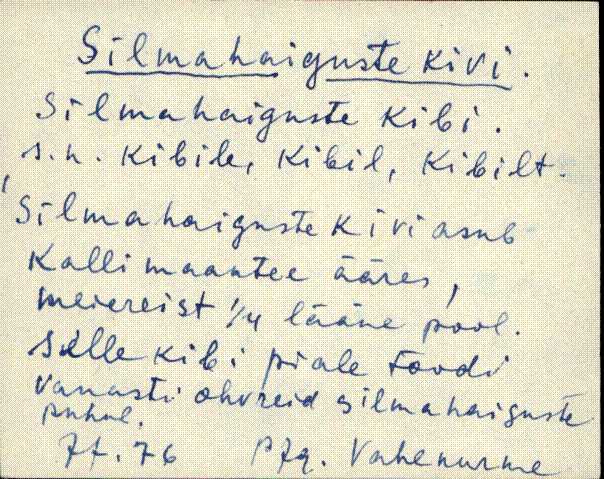 Silmahaiguste kivi.
Silmahaiguste kibi.
s.n. kibile, kibil, kibilt.
Silmahaiguste kivi asub
Kalli maantee ääres,
meiereist 1/4 lääne pool.
Selle kibi piale toodi
vanasti ohvreid silmahaiguste
puhul.
76 Vahenurme